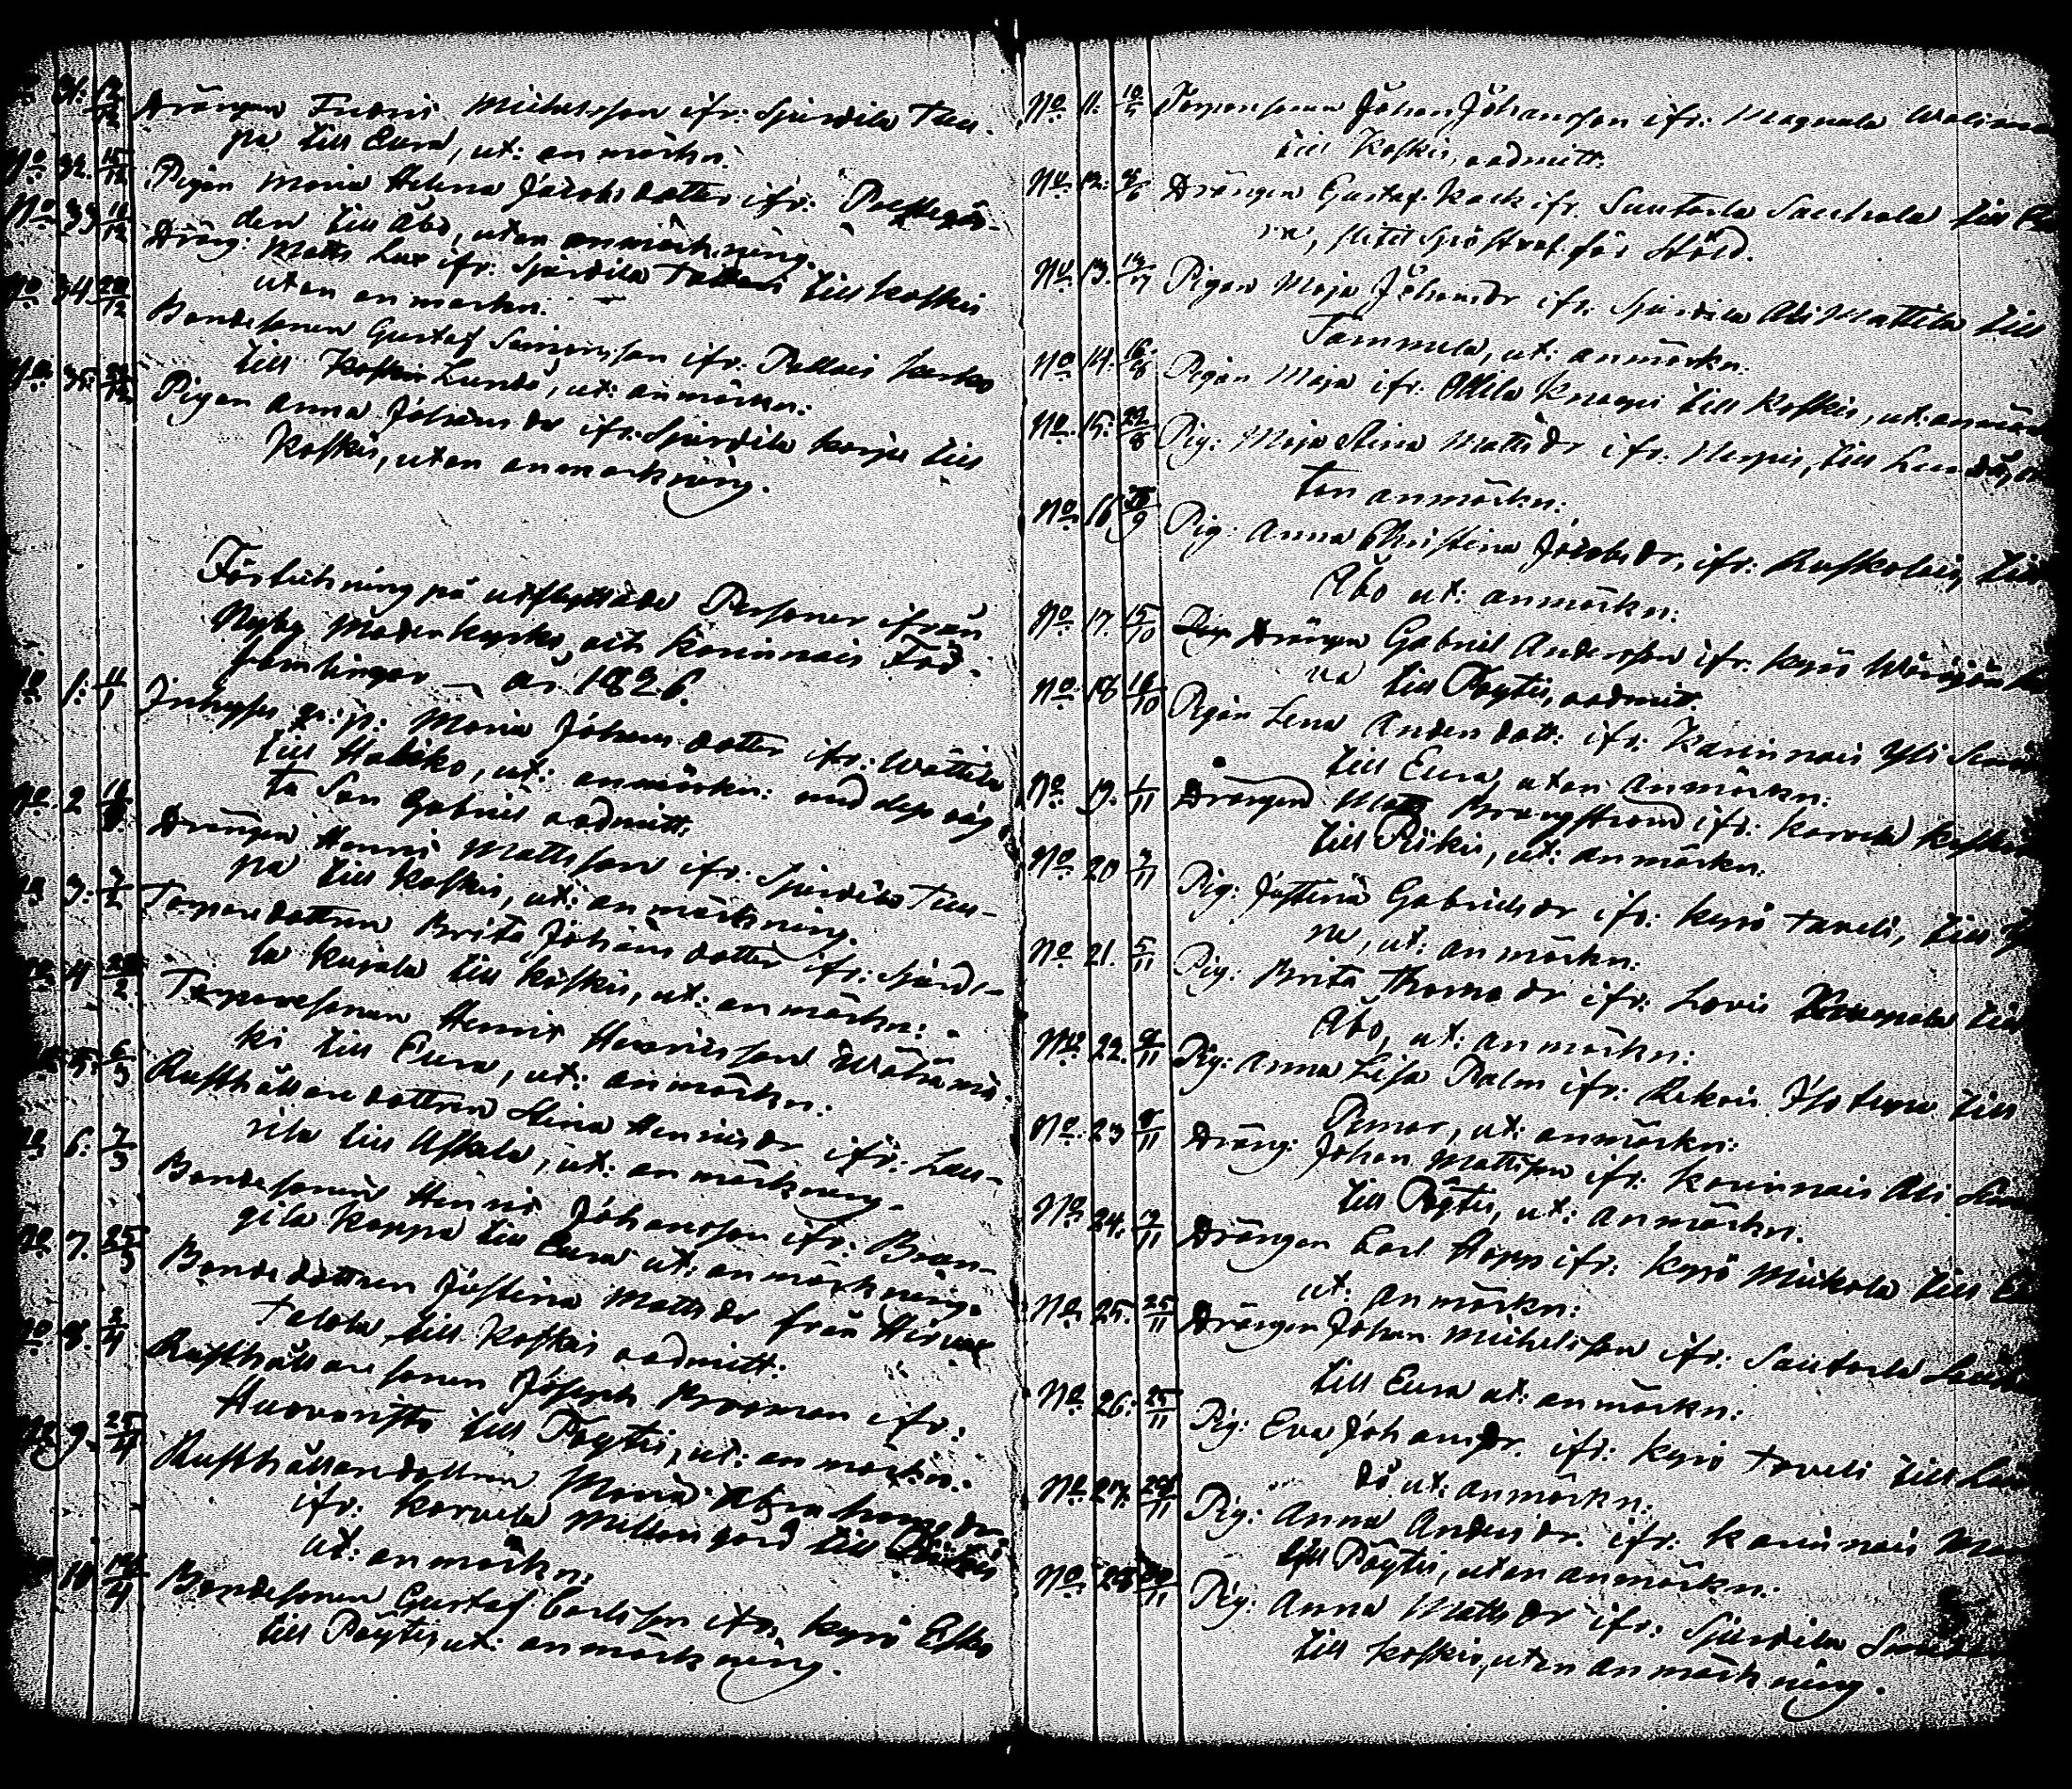 31. 12/12 Drängen Fredric Michelsson ifr: Sjurdila Tuu-
pa till Eura, ut: anmärkn:
No 32. 15/12 Pigan Maria Helena Jacobsdotter ifr: Prestegår-
den till Åbo, utan anmärkning.
No 33 18/12 Dräng: Matts Lax ifr: Sjurdila Tattari till Koskis
utan anmärkn:
No 34 20/12 Bondesonen Gustaf Simonsson ifr: Pallais
till Lundo, ut: anmärkn:
No 35. Pigan Anna Johansdr ifr: Sjurdila Korja till
Koskis, utan anmärkning.
Förtekning på utflyttade Personer ifrån
Nyby Moderkyrko, och Karinais
församlingar år 1826.
No 1. 11/1 Inhyses qv:p: Maria Johansdotter ifr: Wättilä
till Halikko, ut: anmärkn: med dess oäg-
ta Son Gabriel oadmitt.
No. 2 Drängen Henric Mattsson ifr: Sjurdila Tuu-
pa till Koskis, ut: anmärkning.
No 3. Torpardottren Brita Johansdotter ifr: Sjurdi-
la Kujala till Koskis, ut: anmärkn:
No 4 Torparesonen Henric Henricsson
ki till Eura, ut: anmärkn:
5. 6/3 Rusthållaredottren Stina Henricsdr ifr: Lau-
rila till Askala, ut: anmärkning.
No 6. 7/3 Bondesonen Henric Johansson ifr: Bran-
gila Kappa till Eura ut: anmärkning.
No 7. 25/3 Bondedottren Justina Mattsdr från Hirvas
Talola till Koskis oadmitt:
No 8. 2/4 Rusthållaresonen Joseph Broman ifr:
Auvoristo till Pöytis, ut: anmärkn:
No 9. 25/4 Rusthållaredottren Maria Abrahamsdr
ifr: Karvela Mellangård till
ut: anmärkn:
10 Bondesonen Gustaf Carlsson ifr: Kyrö Esko
till Pöytis, ut: anmärkning.
No 11. 10/5 Torparesonen Johan Johansson ifr: Magnula
till Koskis, oadmitt:
No 12. Drängen Gustaf Kock ifr. Suutarla till
ra, slitit Spöstraf för Stöld.
No 13. Pigan Maja Johansdr ifr: Sjurdila Ali Mattila till
Tammela, ut: anmärkn:
No 14. 16/8 Pigan Maja ifr: Ollila Knaapi till Koskis, ut: anmärk
No 15. 22/8 Pig: Maja Stina Mattsdr ifr: till Lundo, u
tan anmärkn:
No 16 Pig: Anna Christina Jacobsdr, ifr: till
Åbo ut: anmärkn:
No 17. 15/10 Drängen Gabriel Andersson ifr: Kyrö
va till Pöytis, oadmit.
No 18 18/10 Pigan Lena Andersdott: ifr: Karinais Yli
till Eura, utan anmärkn:
No 19. 1/11 Drängen Matts Brangström ifr: Karvela
till Piikis, ut: anmärkn:
No 20 Pig: Justina Gabrielsdr ifr: Kyrö Taveli, till
ne, ut: anmärkn:
No 21. 5/11 Pig: Brita Thomasdr ifr: Lovis till
Åbo, ut: anmärkn:
No 22. Pig: Anna Lisa Palm ifr: Rekois Isotupa till
Pemar, ut: anmärkn:
No 23 Dräng: Johan Mattsson ifr: Karinais Ali
till Pöytis, ut: anmärkn.
No 24. Drängen Carl Hopp ifr: Kyrö Miekola till
ut: anmärkn:
No 25. 25/11 Drängen Johan Michelsson ifr: Suutarla
till Eura ut: anmärkn:
No 26. 25/11 Pig: Eva Johansdr. ifr: Kyrö Taveli till Lun
do ut: anmärkn:
No 27. Pig: Anna Andersdr. ifr: Karinais
till Pöytis, utan anmärkn:
No 28 Pig: Anna Mattsdr ifr: Sjurdila
till Koskis, utan anmärkning.